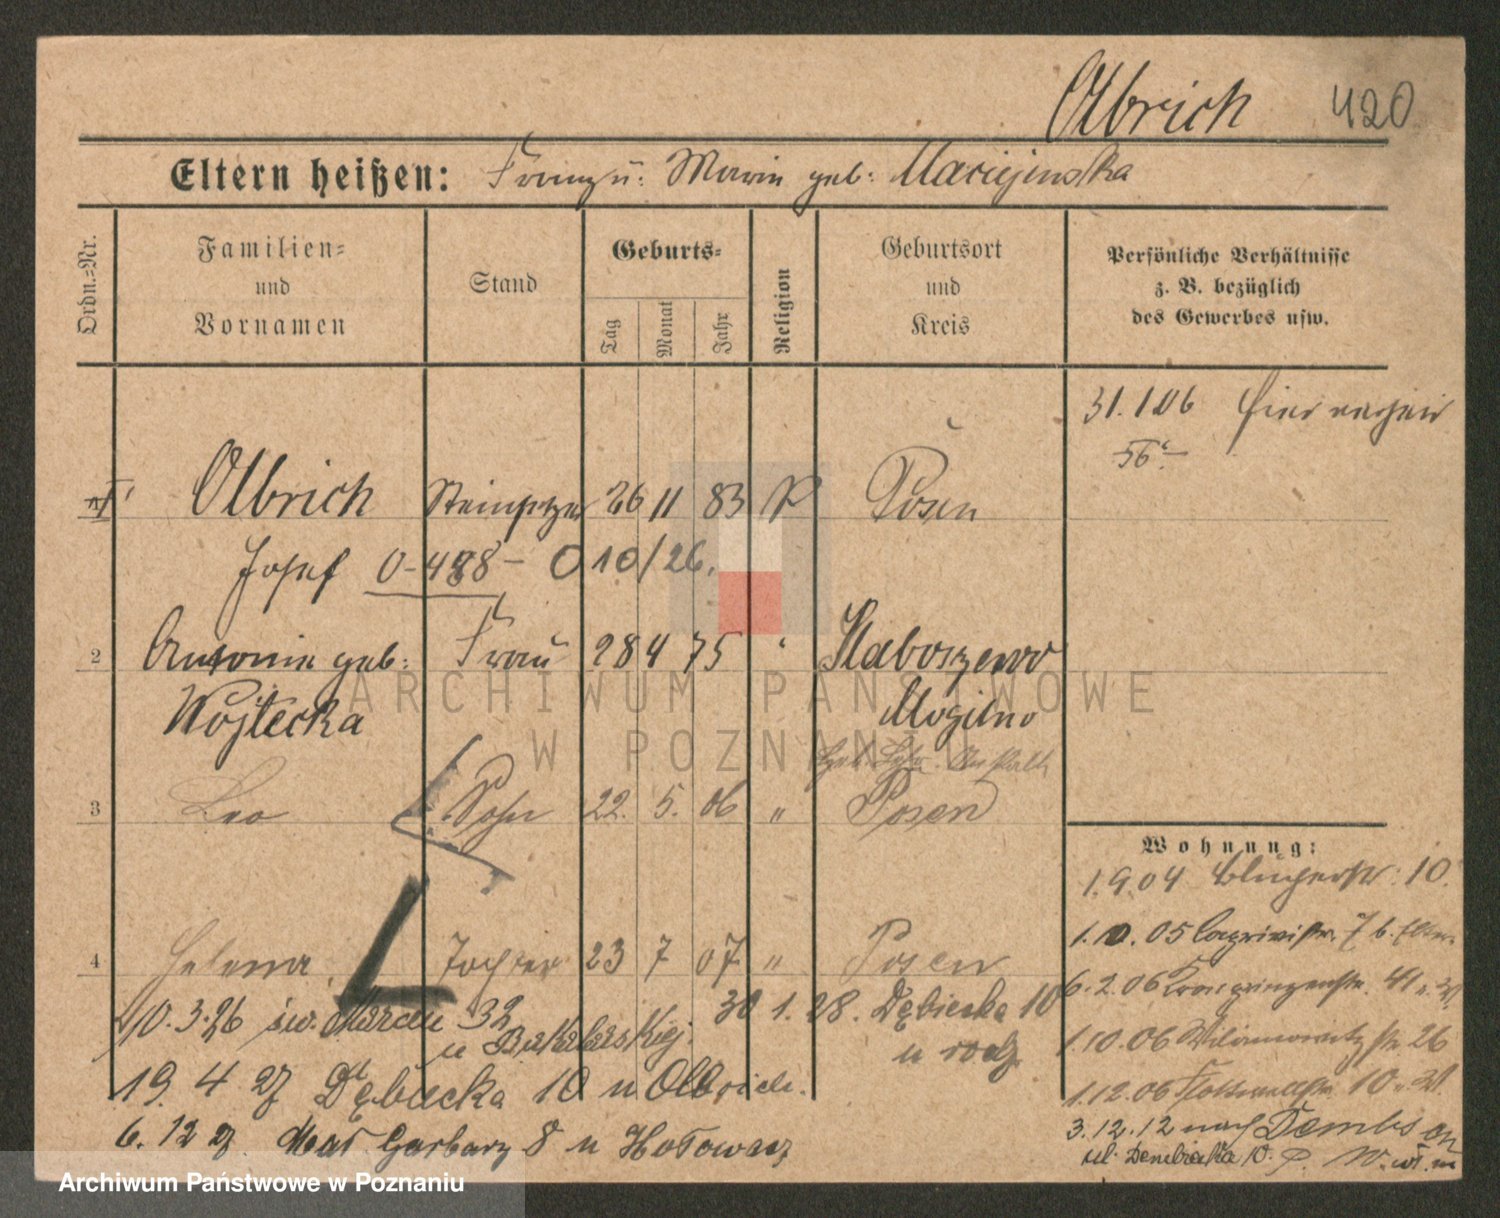 Olbrich 420
Eltern heißen: Franz u: Marie geb: Maciejewska
Ordn.=Nr.
Familien=
und
Vornamen
Stand
Geburts=
Tag
Monat
Jahr
Religion
Geburtsort
und
Kreis
Persönliche Verhältnisse
z. B. bezüglich
des Gewerbes usw.
31. 1 06 hier
56
Olbrich Steinsetzer 26 11 83 Posen
Josef 0-488- 0 10/26.
2 Antonie geb: Frau 28 4 75 " Staboszewo
Wojtecka Mogilno
3 Leo Sohn 22. 5. 06 " Posen
4 Helena Tochter 23 7 07 " Posen
Wohnung:
1.9.04 10.
1.10.05 7 b. Eltern
6.2.06 Kronprinzenstr. 41
1.10.06 26
1.12.06 10
3.12.12 nach Dembsen
ul. Dembinska 10.
10.3.26 św. Marcin 32
u
30 1. 28. Dębiecka 10
u
19. 4 27 Dębiecka 10 u Olbrich.
6. 12 27. Małe Garbary 8 u
ARCHIWUM PAŃSTWOWE
W POZNANIU
Archiwum Państwowe w Poznaniu